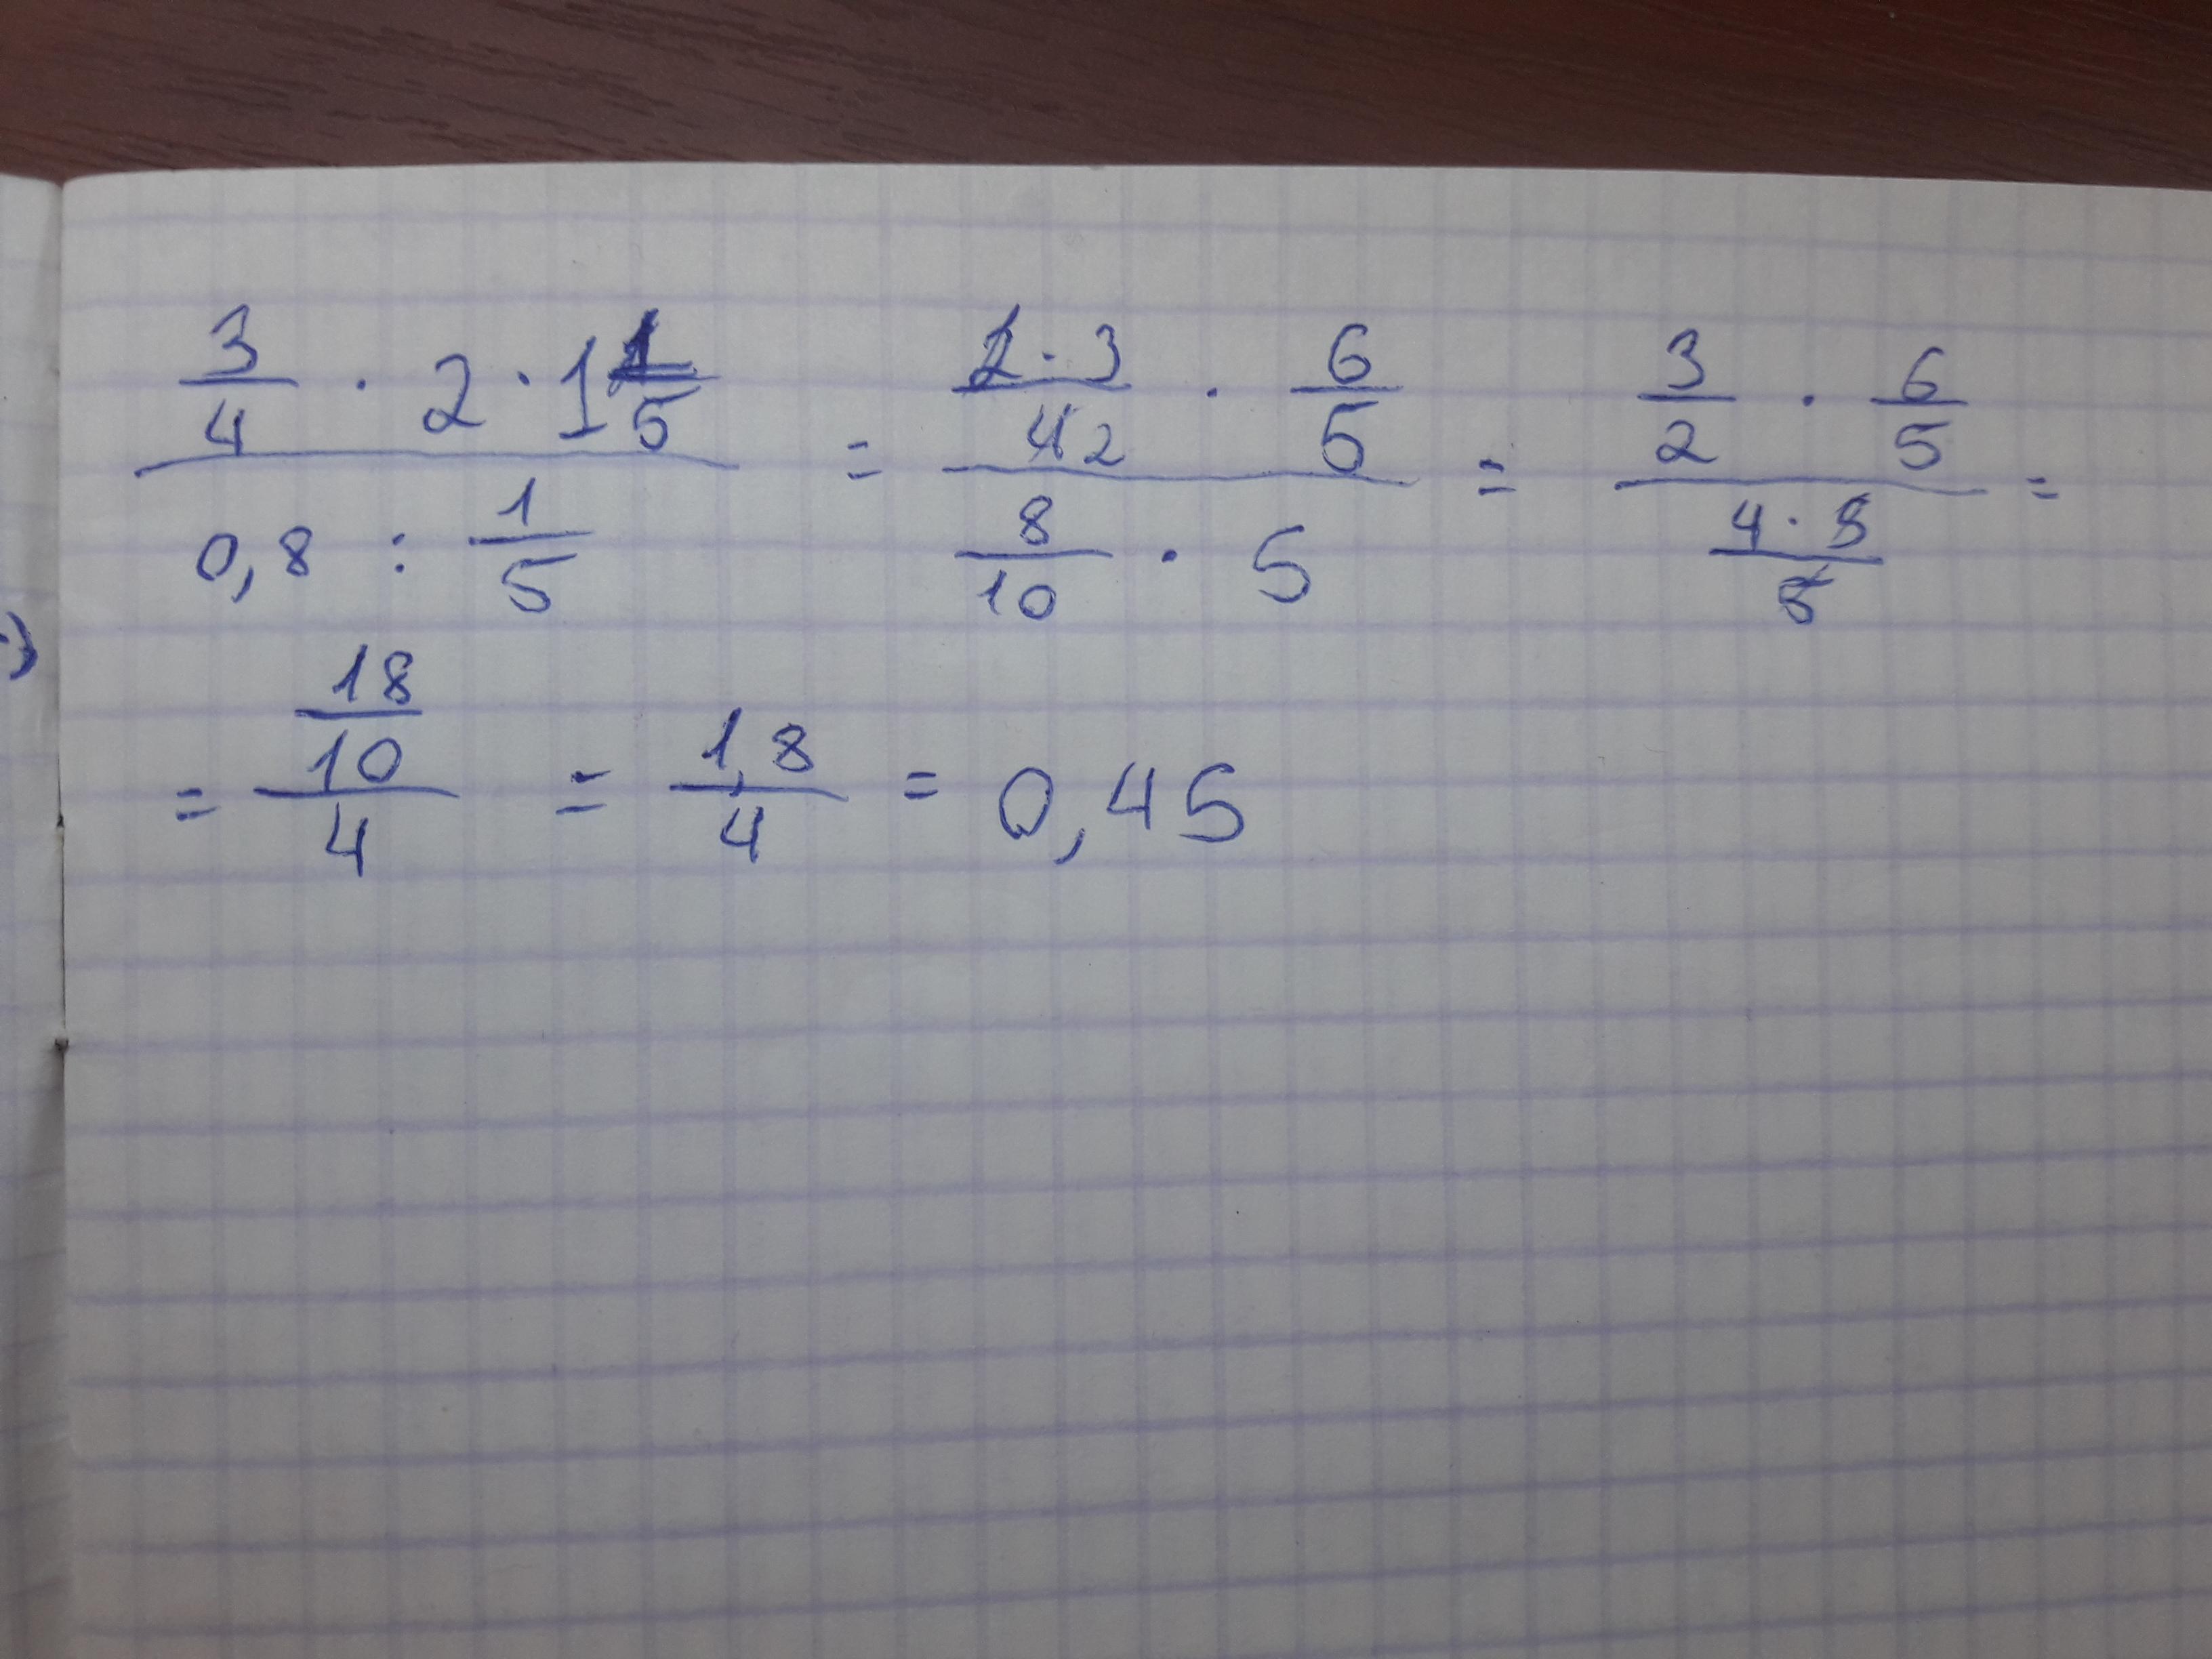 3/4 · 2 · 1 1/5 / 0,8 : 1/5 = 2·3/42 · 6/5 / 8/10 · 5 = 3/2 · 6/5 / 4·5/5 =
= 18/10 / 4 = 1,8/4 = 0,45